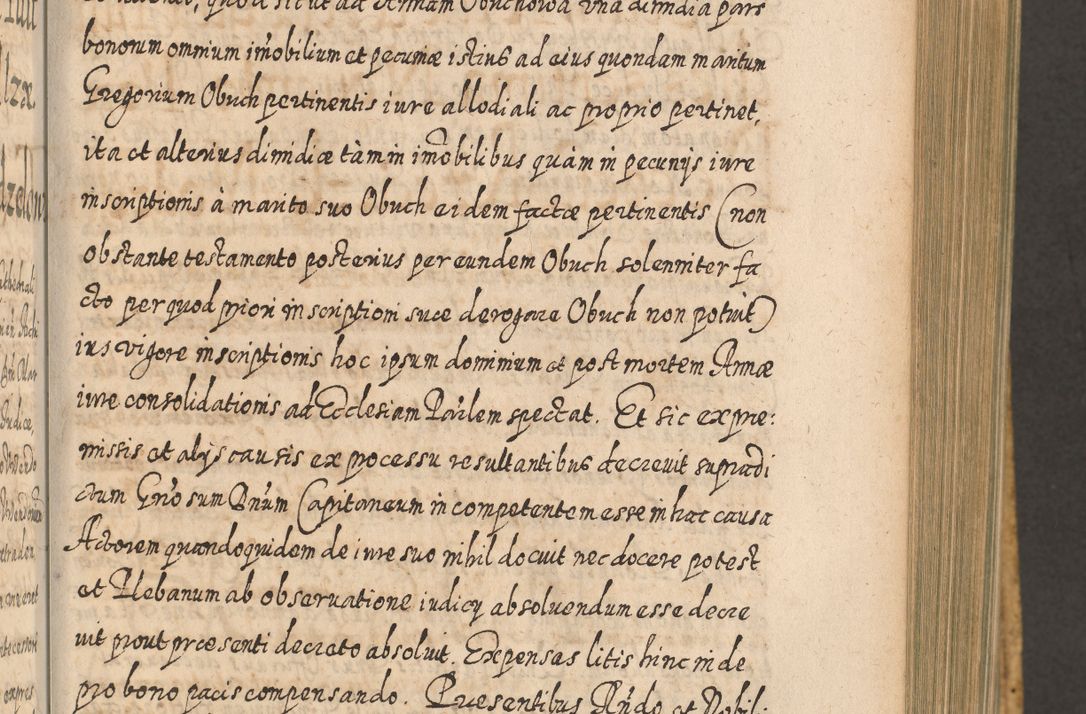 quod sicut ad Annam Obuchowa una dimidia pars
bonorum omnium imobilium et pecuniæ istius ad eius quondam maritum
Gregorium Obuch pertinentis iure allodiali ac proprio pertinet,
ita et alterius dimidiæ tàm in imobilibus quàm in pecunijs iure
inscriptionis à marito suo Obuch eidem factæ pertinentis (non
obstante testamento posterius per eundem Obuch solenniter fa
cto per quod priori inscriptioni suæ derogare Obuch non potuit)
ius vigore inscriptionis hoc ipsum dominium et post mortem Annæ
iure consolidationis ad Ecclesiam Parlem spectat. Et sic ex præ:
missis et alijs causis ex processu resultantibus decrevit supradi
ctum Gnosum Dnum Capitaneum incompetentem esse in hac causa
Actorem quandoquidem de iure suo nihil docuit nec docere potest
et Plebanum ab observatione iudicij absolvendum esse decre
vit prout præsenti decreto absolvit. Expensas litis hinc inde
pro bono pacis compensando. Præsentibus Rndo et Nobil: